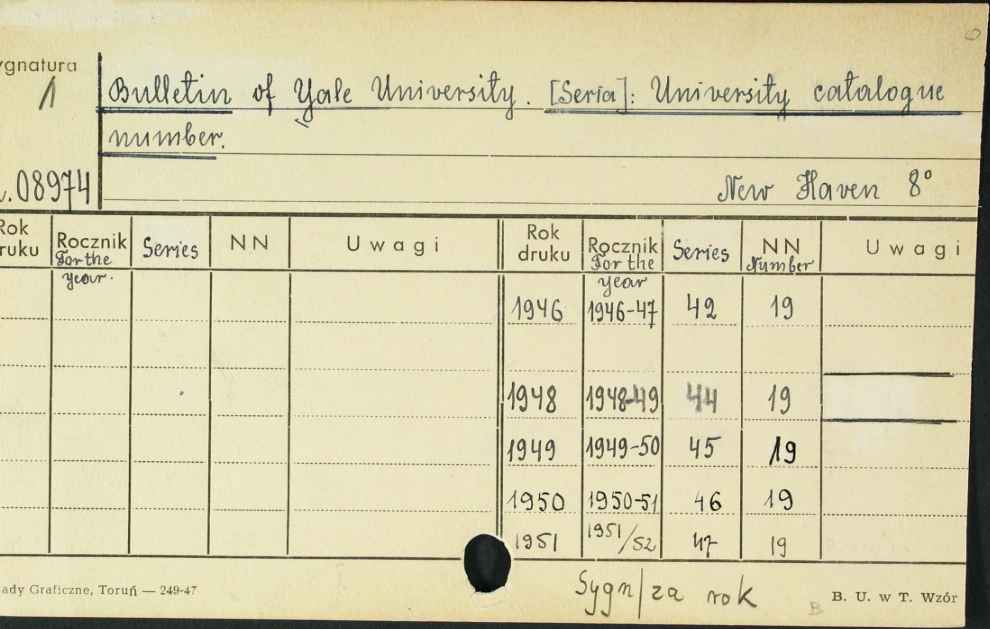 ygnatura
1
Bulletin of Yale University. [Seria]: University catalogue
number.
08974
New Haven 8°
Rok
ruku
Rocznik
For the
year.
Series
NN
Uwagi
Rok
druku
Rocznik
For the
year
Series
NN
Number
Uwagi
1946 1946-47 42 19
1948 1948-49 44 19
1949 1949-50 45 19
1950 1950-51 46 19
1951 1951/52 47 19
ady Graficzne, Toruń — 249-47
Sygn/za rok
B
B. U. w T. Wzór